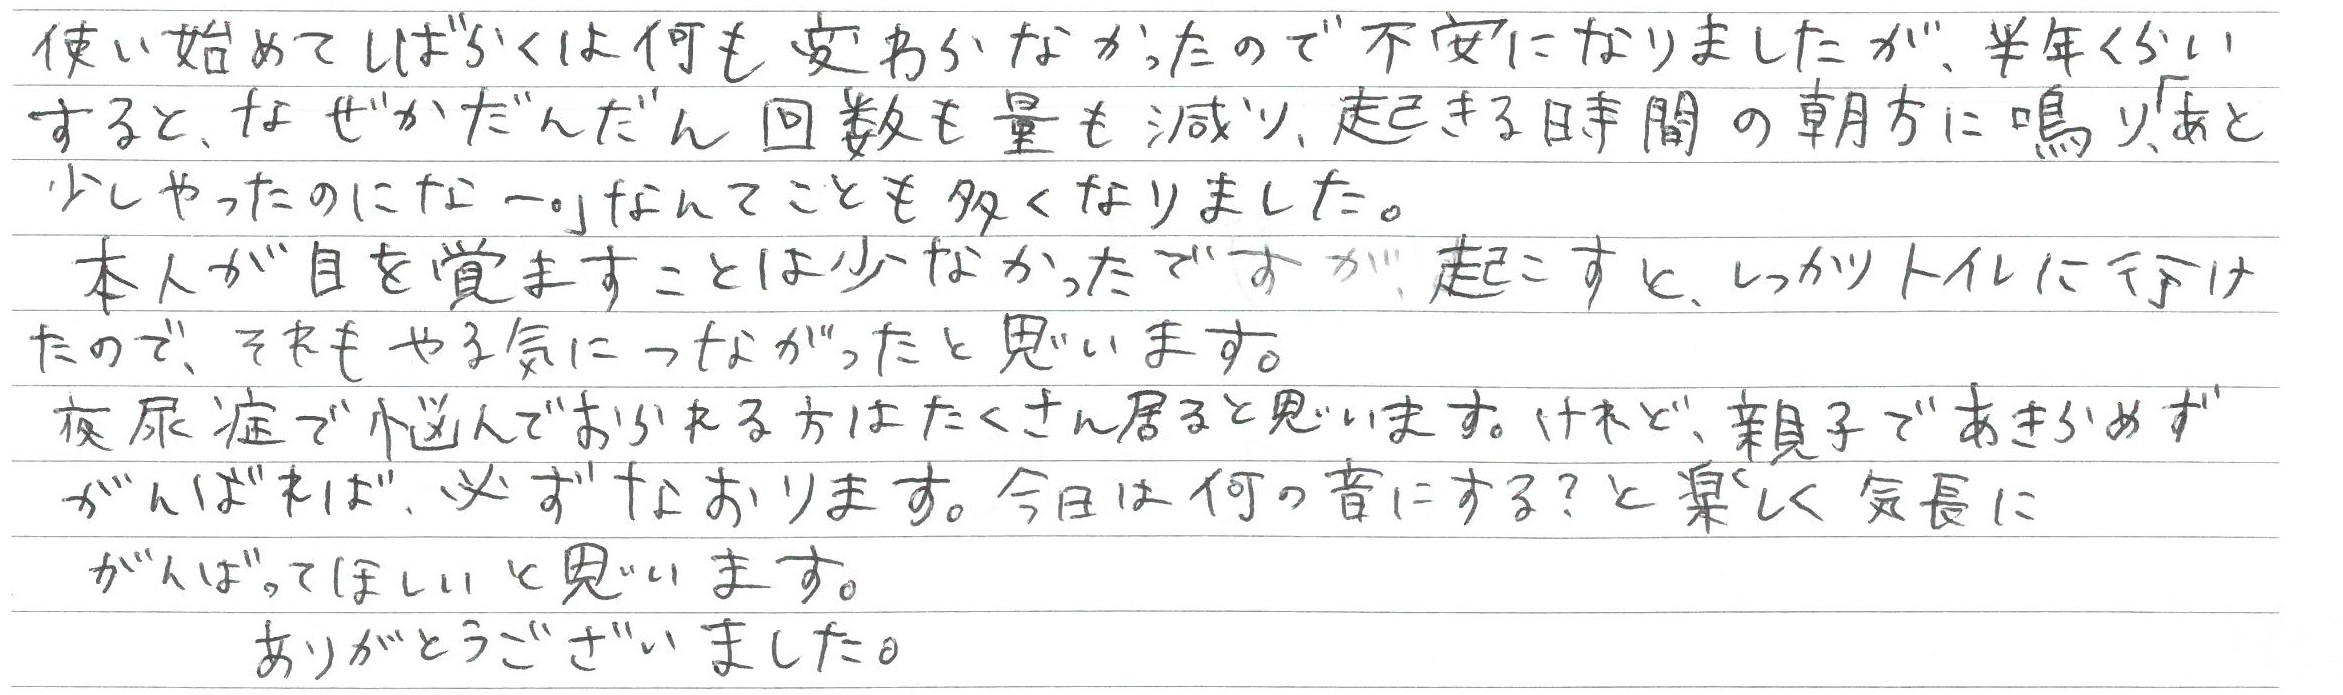 使い始めてしばらくは何も変わらなかったので不安になりましたが、半年くらい
すると、なぜかだんだん回数も量も減り、起きる時間の朝方に鳴り、「あと
少しやったのになー。」なんてことも多くなりました。
本人が目を覚ますことは少なかったですが、起こすと、しっかりトイレに行け
たので、それもやる気につながったと思います。
夜尿症で悩んでおられる方はたくさん居ると思います。けれど、親子であきらめず
がんばれば、必ずなおります。今日は何の音にする?と楽しく気長に
がんばってほしいと思います。
ありがとうございました。